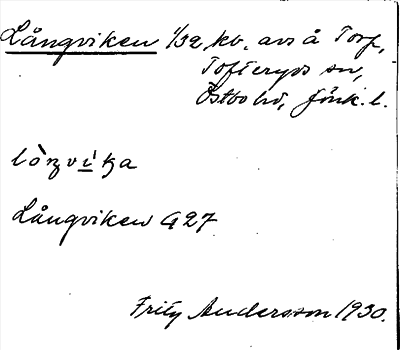 Långviken 1/32 kb. avs å Torp,
Tofteryds sn,
Östbo hd, Jönk. l.
Långviken G27
Fritz Andersson 1930.